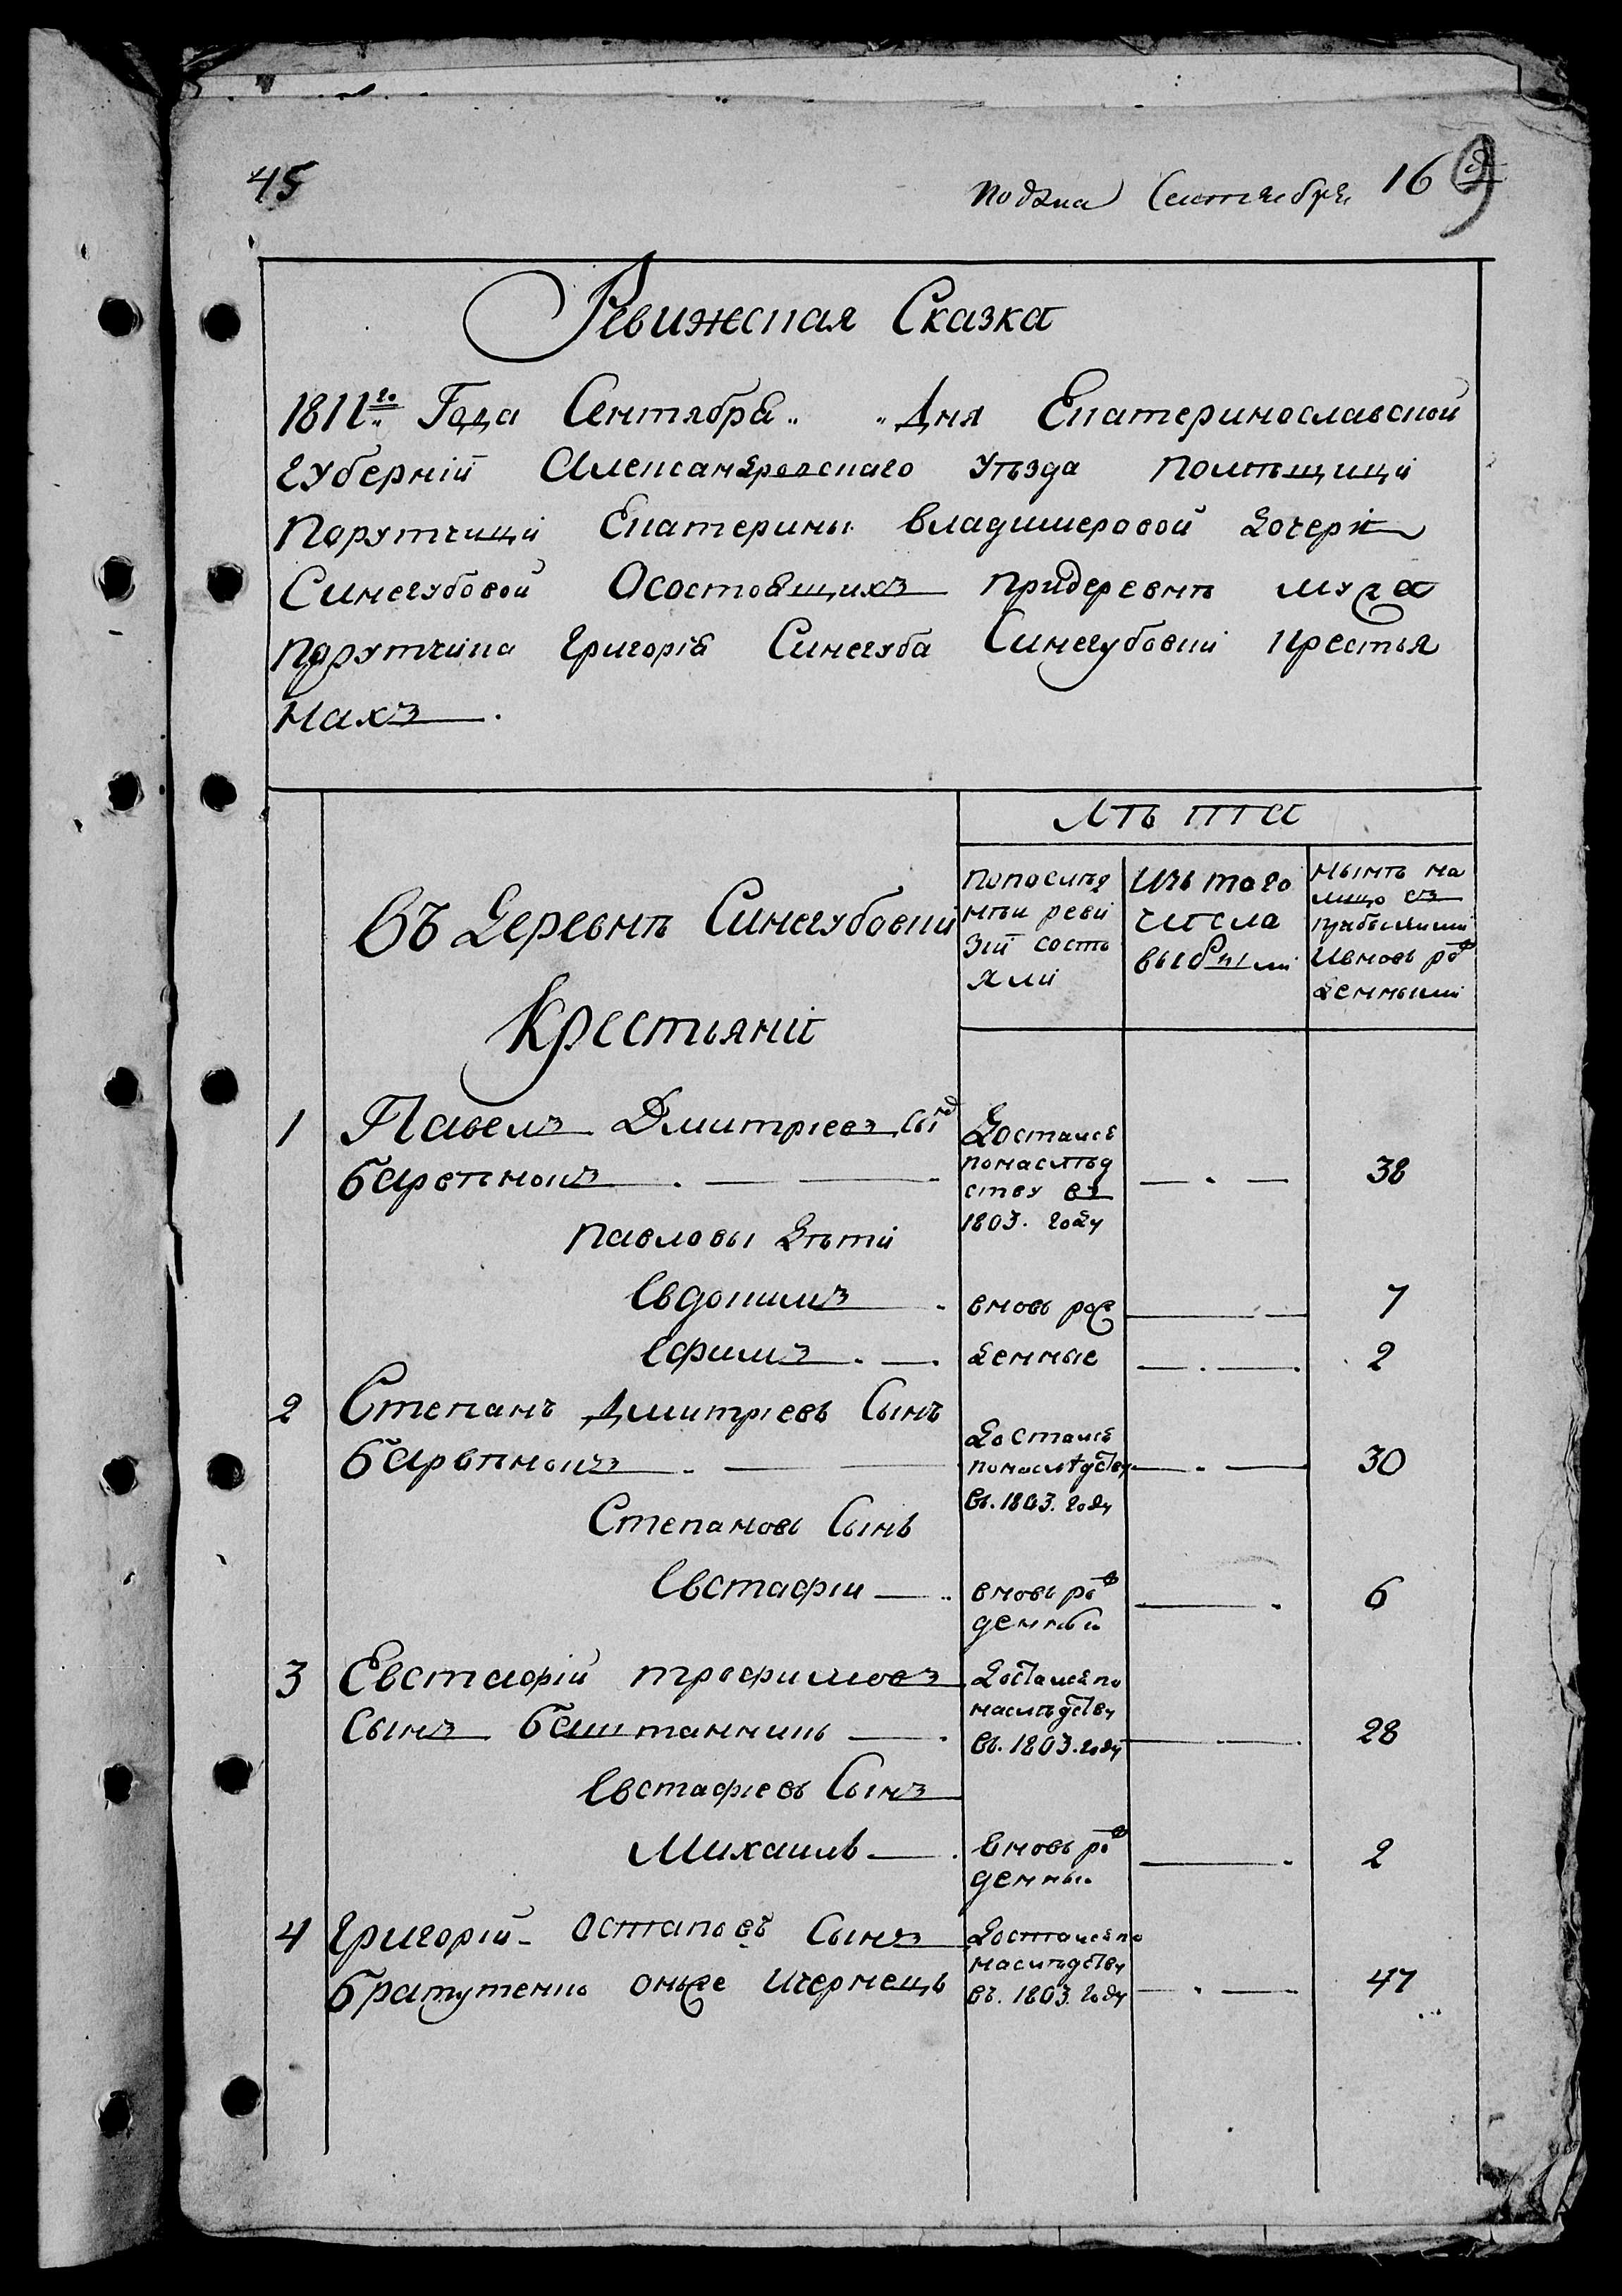 45
подана Сентября 16 9
Ревижская Сказка
1811го Года Сентября „ „ Дня Екатеринославской
губерніи Александровскаго уѣзда помѣщици
Порутчици Екатерины владимеровой дочери
Синегубовой Осостоящихъ придеревнѣ мужа
порутчика Григорія Синегуба Синегубовки крестья
нахъ .
Лѣта
Въ деревнѣ Синегубовки
Крестьяни
попослѣд
нѣи реви
зіи состо
яли
Изъ того
числа
выбыли
нынѣ на
лицо съ
прибылими
ивновь рож
денными
1 Павелъ Дмитріевъ Сынъ
барвѣнокъ
достался
понаслѣд
ству въ
1803. году
38
Павловы дѣти
Евдокимъ вновь рож 7
Ефимъ денные 2
2 Степанъ Дмитріевъ Сынъ
барвѣнокъ
достался
понаслѣдству
въ. 1803. году
30
Степановъ Сынъ
Евстафіи вновь рож 6
денныи
3 Евстафіи трофимовъ достался по
Сынъ баштанникъ наслѣдству
въ. 1803. году 28
Евстафіевъ Сынъ
Михаилъ вновь рож 2
денныи
4 Григоріи Остаповъ Сынъ достался по
братутенко онъже ичернецъ наслѣдству
въ. 1803. году 47